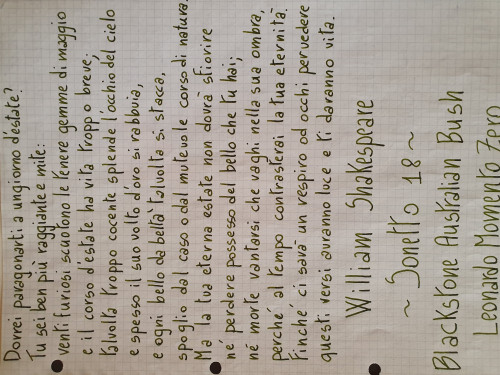 Dovrei paragonarti a un giorno d'estate?
Tu sei ben più raggiante e mite:
venti furiosi scuotono le tenere gemme di maggio
e il corso d'estate ha vita troppo breve;
talvolta troppo cocente splende l'occhio del cielo
e spesso il suo volto d'oro si rabbuia,
e ogni bello da beltà talvolta si stacca,
spoglio dal caso o dal mutevole corso di natura.
Ma la tua eterna estate non dovrà sfiorire
né perdere possesso del bello che tu hai;
né morte vantarsi che vaghi nella sua ombra,
perché al tempo contrasterai la tua eternità.
Finché ci sarà un respiro od occhi per vedere
questi versi avranno luce e ti daranno vita.
William Shakespeare
~ Sonetto 18 ~
Blackstone Australian Bush
Leonardo Momento Zero